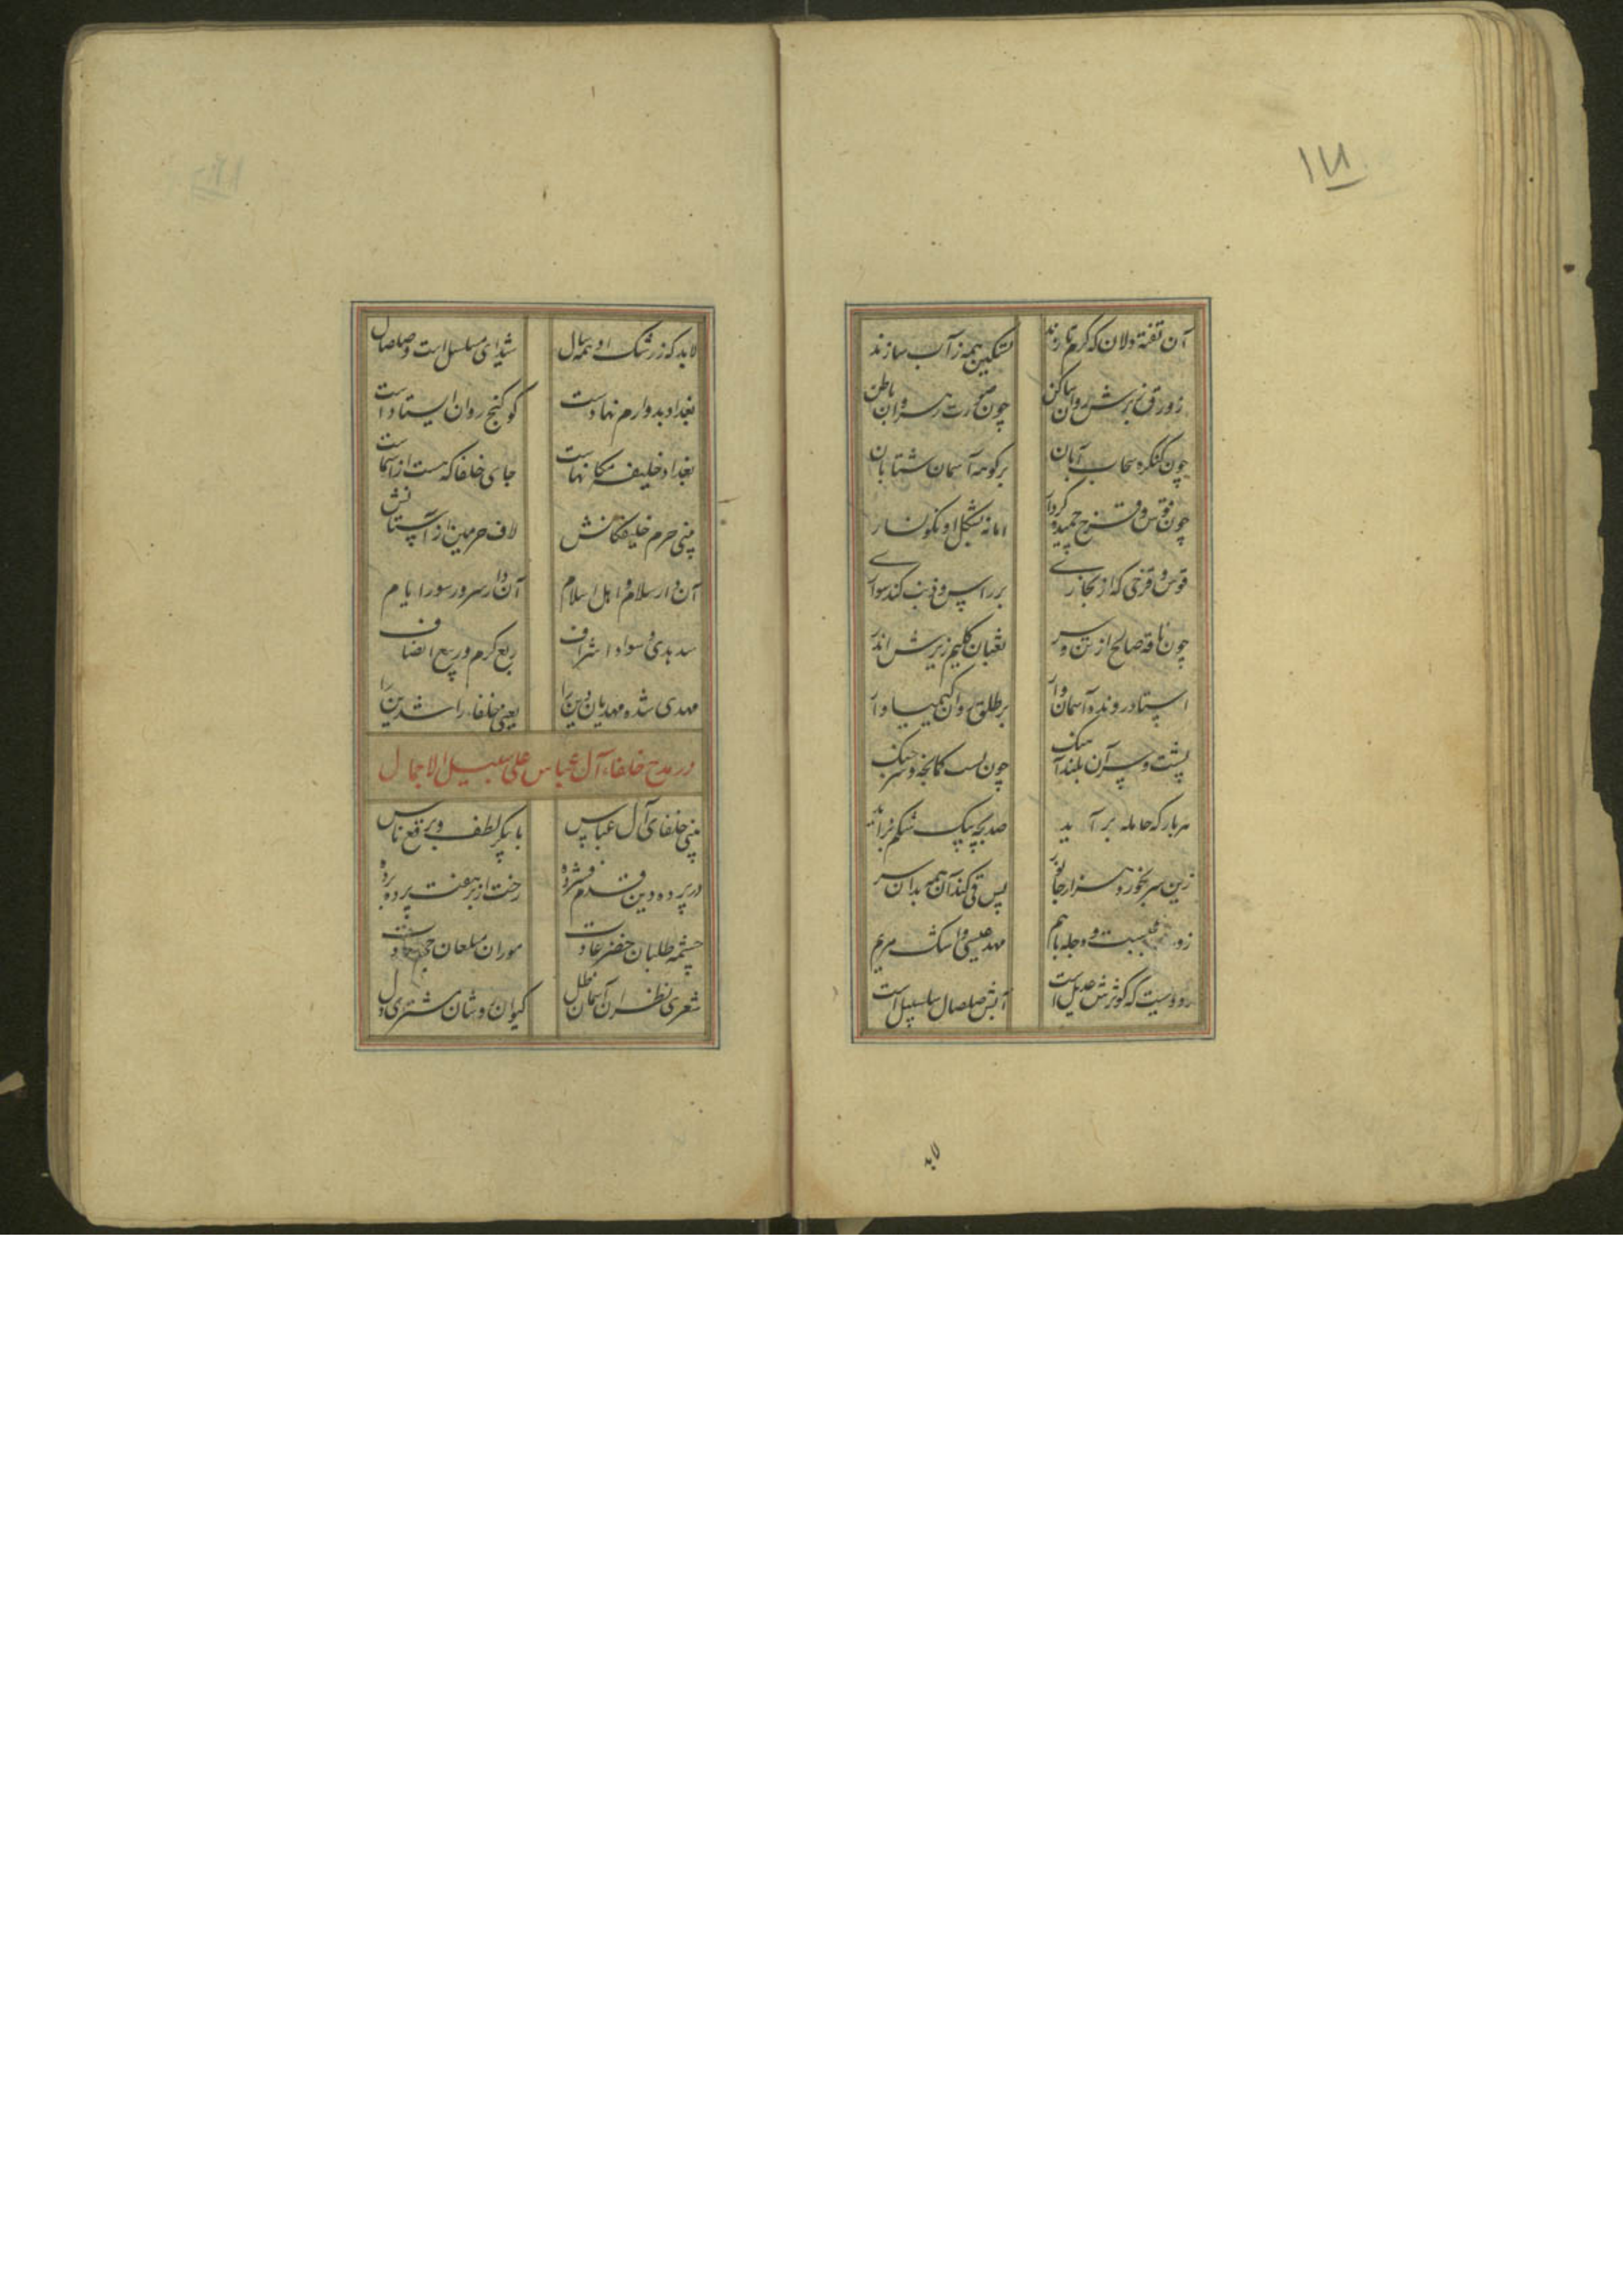 ۱۷۱
آن تفته دلان که گرم تازند تسکین همه ز آب سازند
زورق ز برش روان ساکن چون صورت رهروان باطن
چون کنگره سحاب آبان بر کوهه آسمان شتابان
چون قوس و قزح خمیده کردار اما نه بشکل او نگونسار
قوس و قزحی که از بخاری بر راس و ذنب کند سواری
چون ناقه صالح از تن و سر ثعبان کلیم زیرش اندر
استاد رونده آسمان وار بر طلق روان کیمیا وار
پشت و سر آن بلند آهنگ چون پشت کمانچه و سر چنگ
هر بار که حامله بر آید صد بچه بیک شکم بزاید
زین سر بخورد هزار جانور پس قی کند آن همه بدان سر
زورق و دجله با هم مهد عیسی و اشک مریم
رودیست که کوثرش عدیل است آبش صلصال سلسبیل است
۸۷
لابد که ز رشک او همه سال شیدای مسلسل است و صلصال
بغداد بدو ارم نهادست کو گنج روان ایستادست
بغداد خلیفه مکانهاست جای خلفا که هست از آسمانست
بینی حرم خلیفگانش لاف حرمین از آستانش
آن دار سلام و اهل اسلام آن دار سرور سور ایام
سد هدی و سواد اشراف ربع کرم و ربیع انصاف
مهدی شده مهدیان دین را یعنی خلفاء راشدین را
در مدح خلفاء آل عباس علی سبیل الاجمال
بینی خلفای آل عباس با پیکر لطف و برقع ناس
در پرده دین قدم فشرده رخت از بر هفت پرده برده
چشمه طلبان خضر عادت موران سلیمان
شعری نظران آسمان ظل کیوان روشان مشتری دل